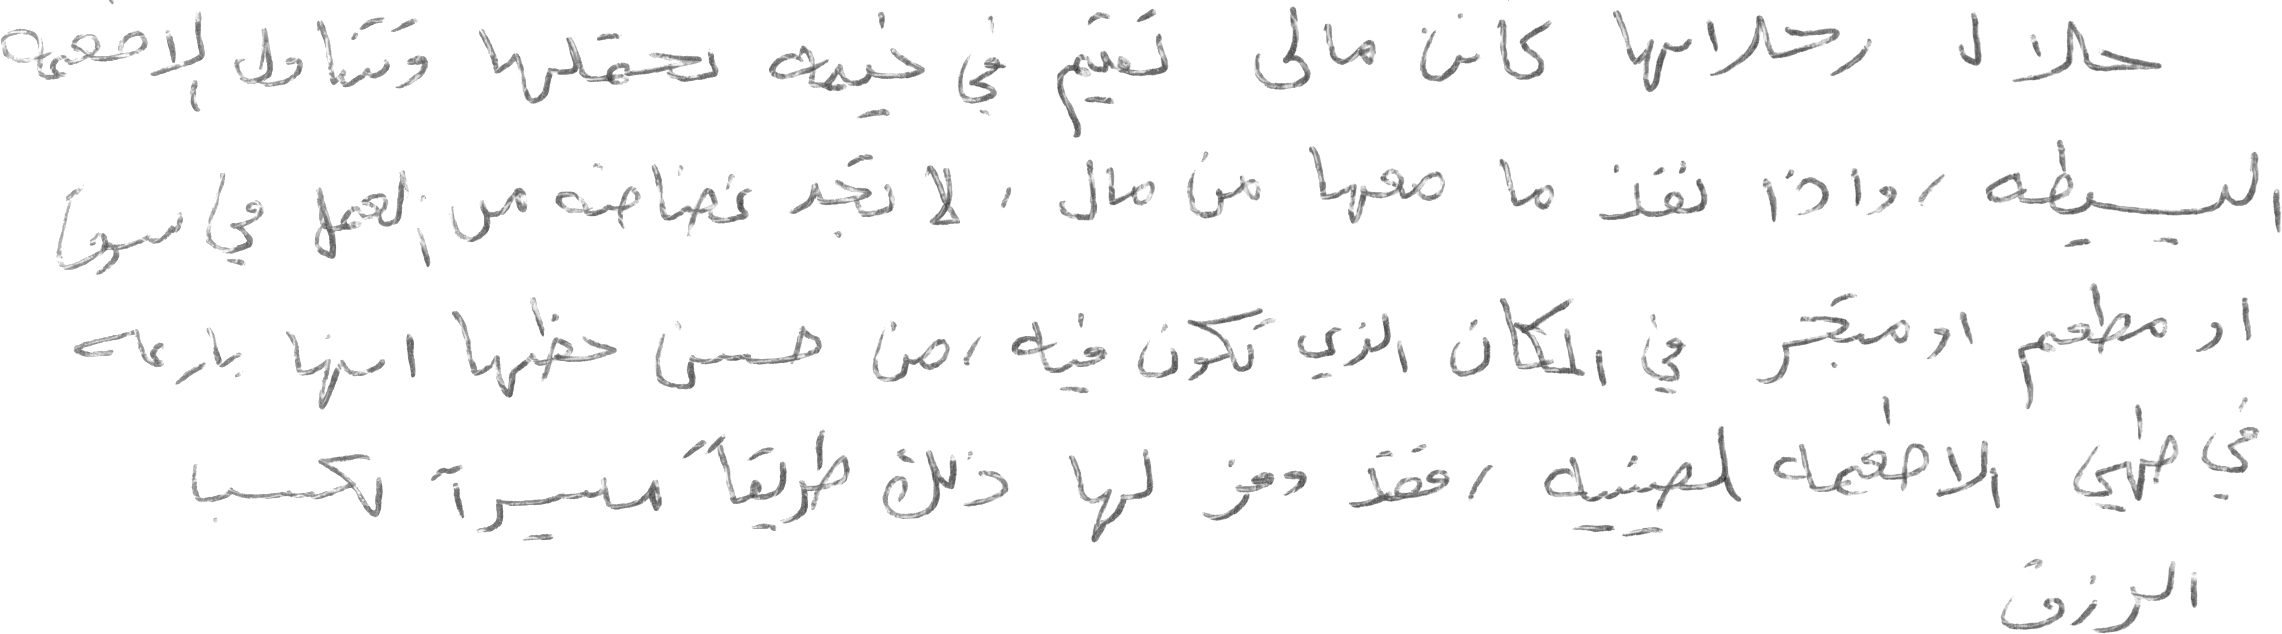 خلال رحلاتها كانت مالي تقيم في خيمه تحملها وتتناول الاطعمه
البسيطه ، واذا نفذ ما معها من مال ، لا تجد غضاضه من العمل في سوق
او مطعم او متجر في المكان الذي تكون فيه ، من حسن حظها انها بارعه
في طهي الاطعمه الصينيه ، فقد وفر لها ذلك طريقاً ميسرآ لكسب
الرزق